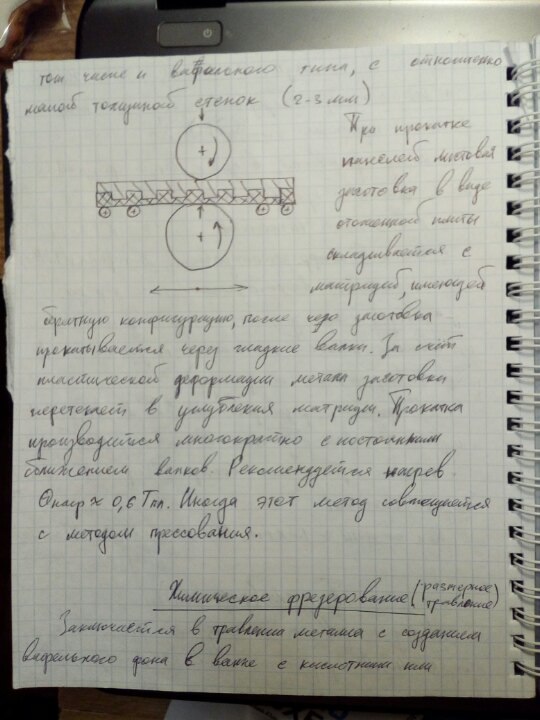 том числе и вафельного типа, с относительно
малой толщиной стенок (2-3 мм)
При прокатке
панелей листовая
заготовка в виде
отожженной плиты
складывается с
матрицей, имеющей
обратную конфигурацию, после чего заготовка
прокатывается через гладкие валки. За счёт
пластической деформации металл заготовки
перетекает в углубления матрицы. Прокатка
производится многократно с постоянным
сближением валков. Рекомендуется нагрев
Θнагр ≈ 0,6 Тпл. Иногда этот метод совмещается
с методом прессования.
Химическое фрезерование (размерное
травление)
Заключается в травлении металла с созданием
вафельного фона в ванне с кислотным или